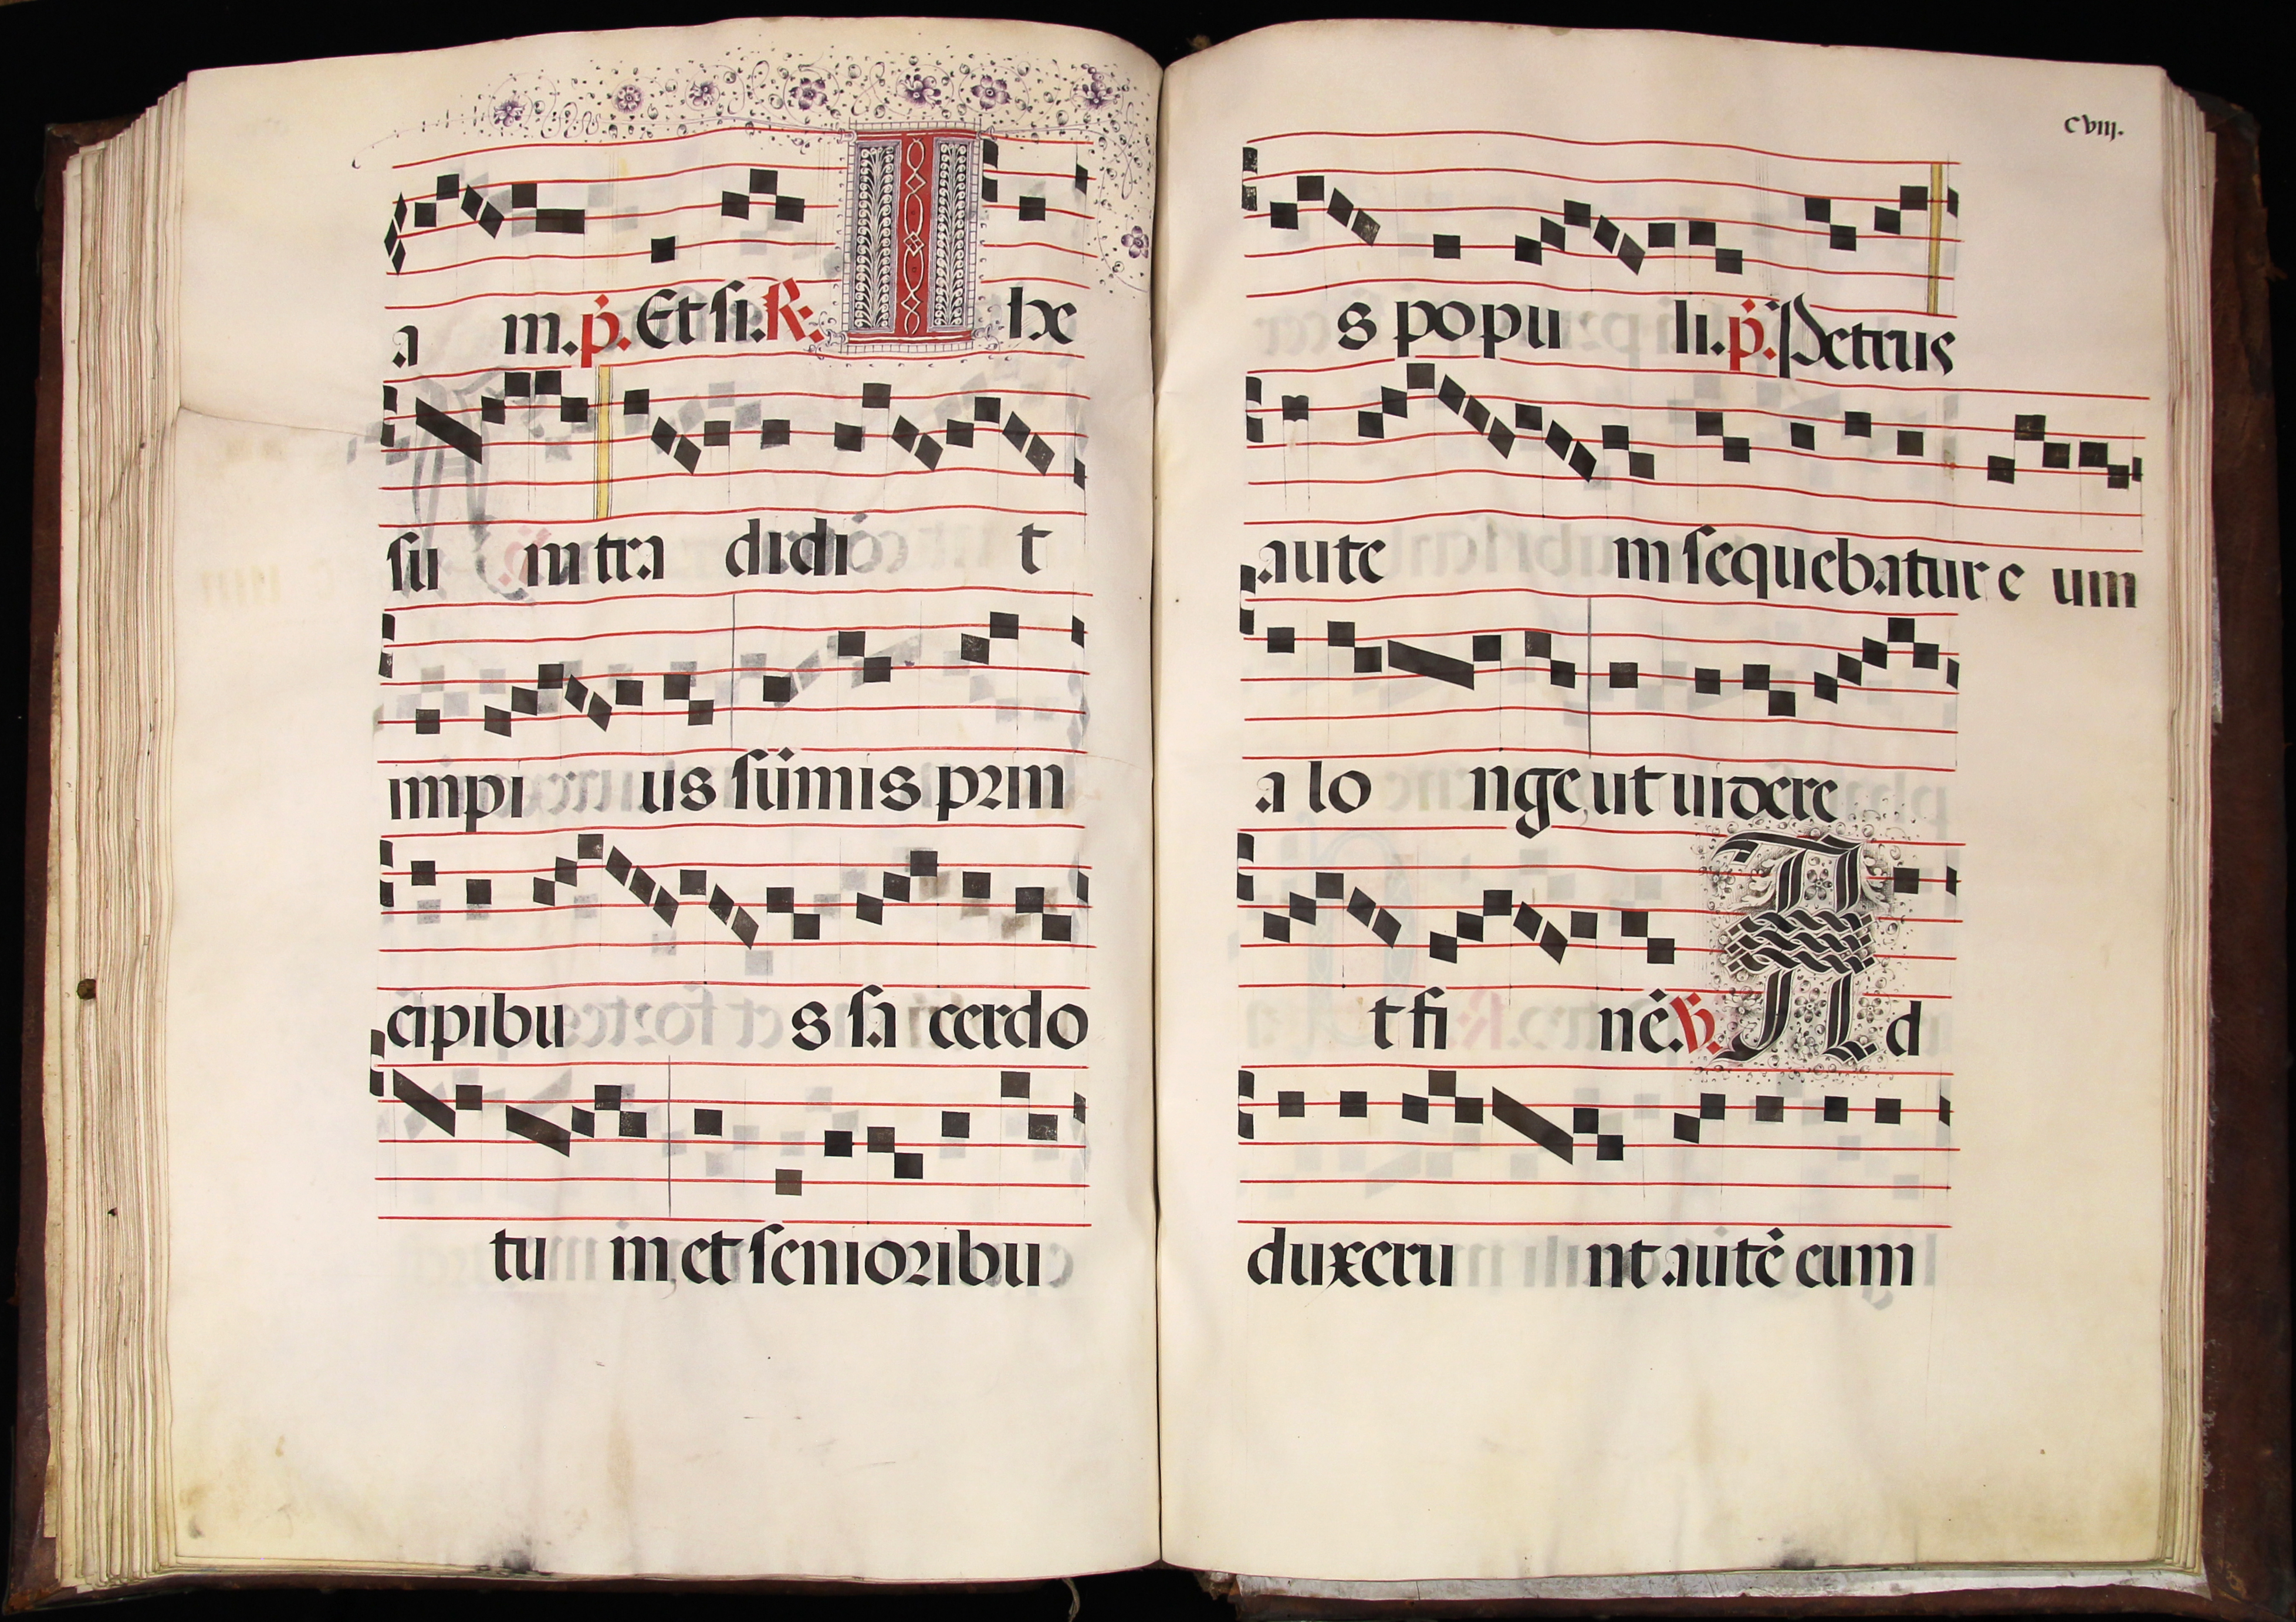 a m. p̃. Et si. R. Ihe
su m tra didi t
impi us sũmis prin
cipibu s sa cerdo
tu m et senioribu
cviij.
s popu li. p̃. Petrus
aute m sequebatur e um
a lo nge ut uidere
t fi nẽ. V. Ad
duxeru nt autẽ eum